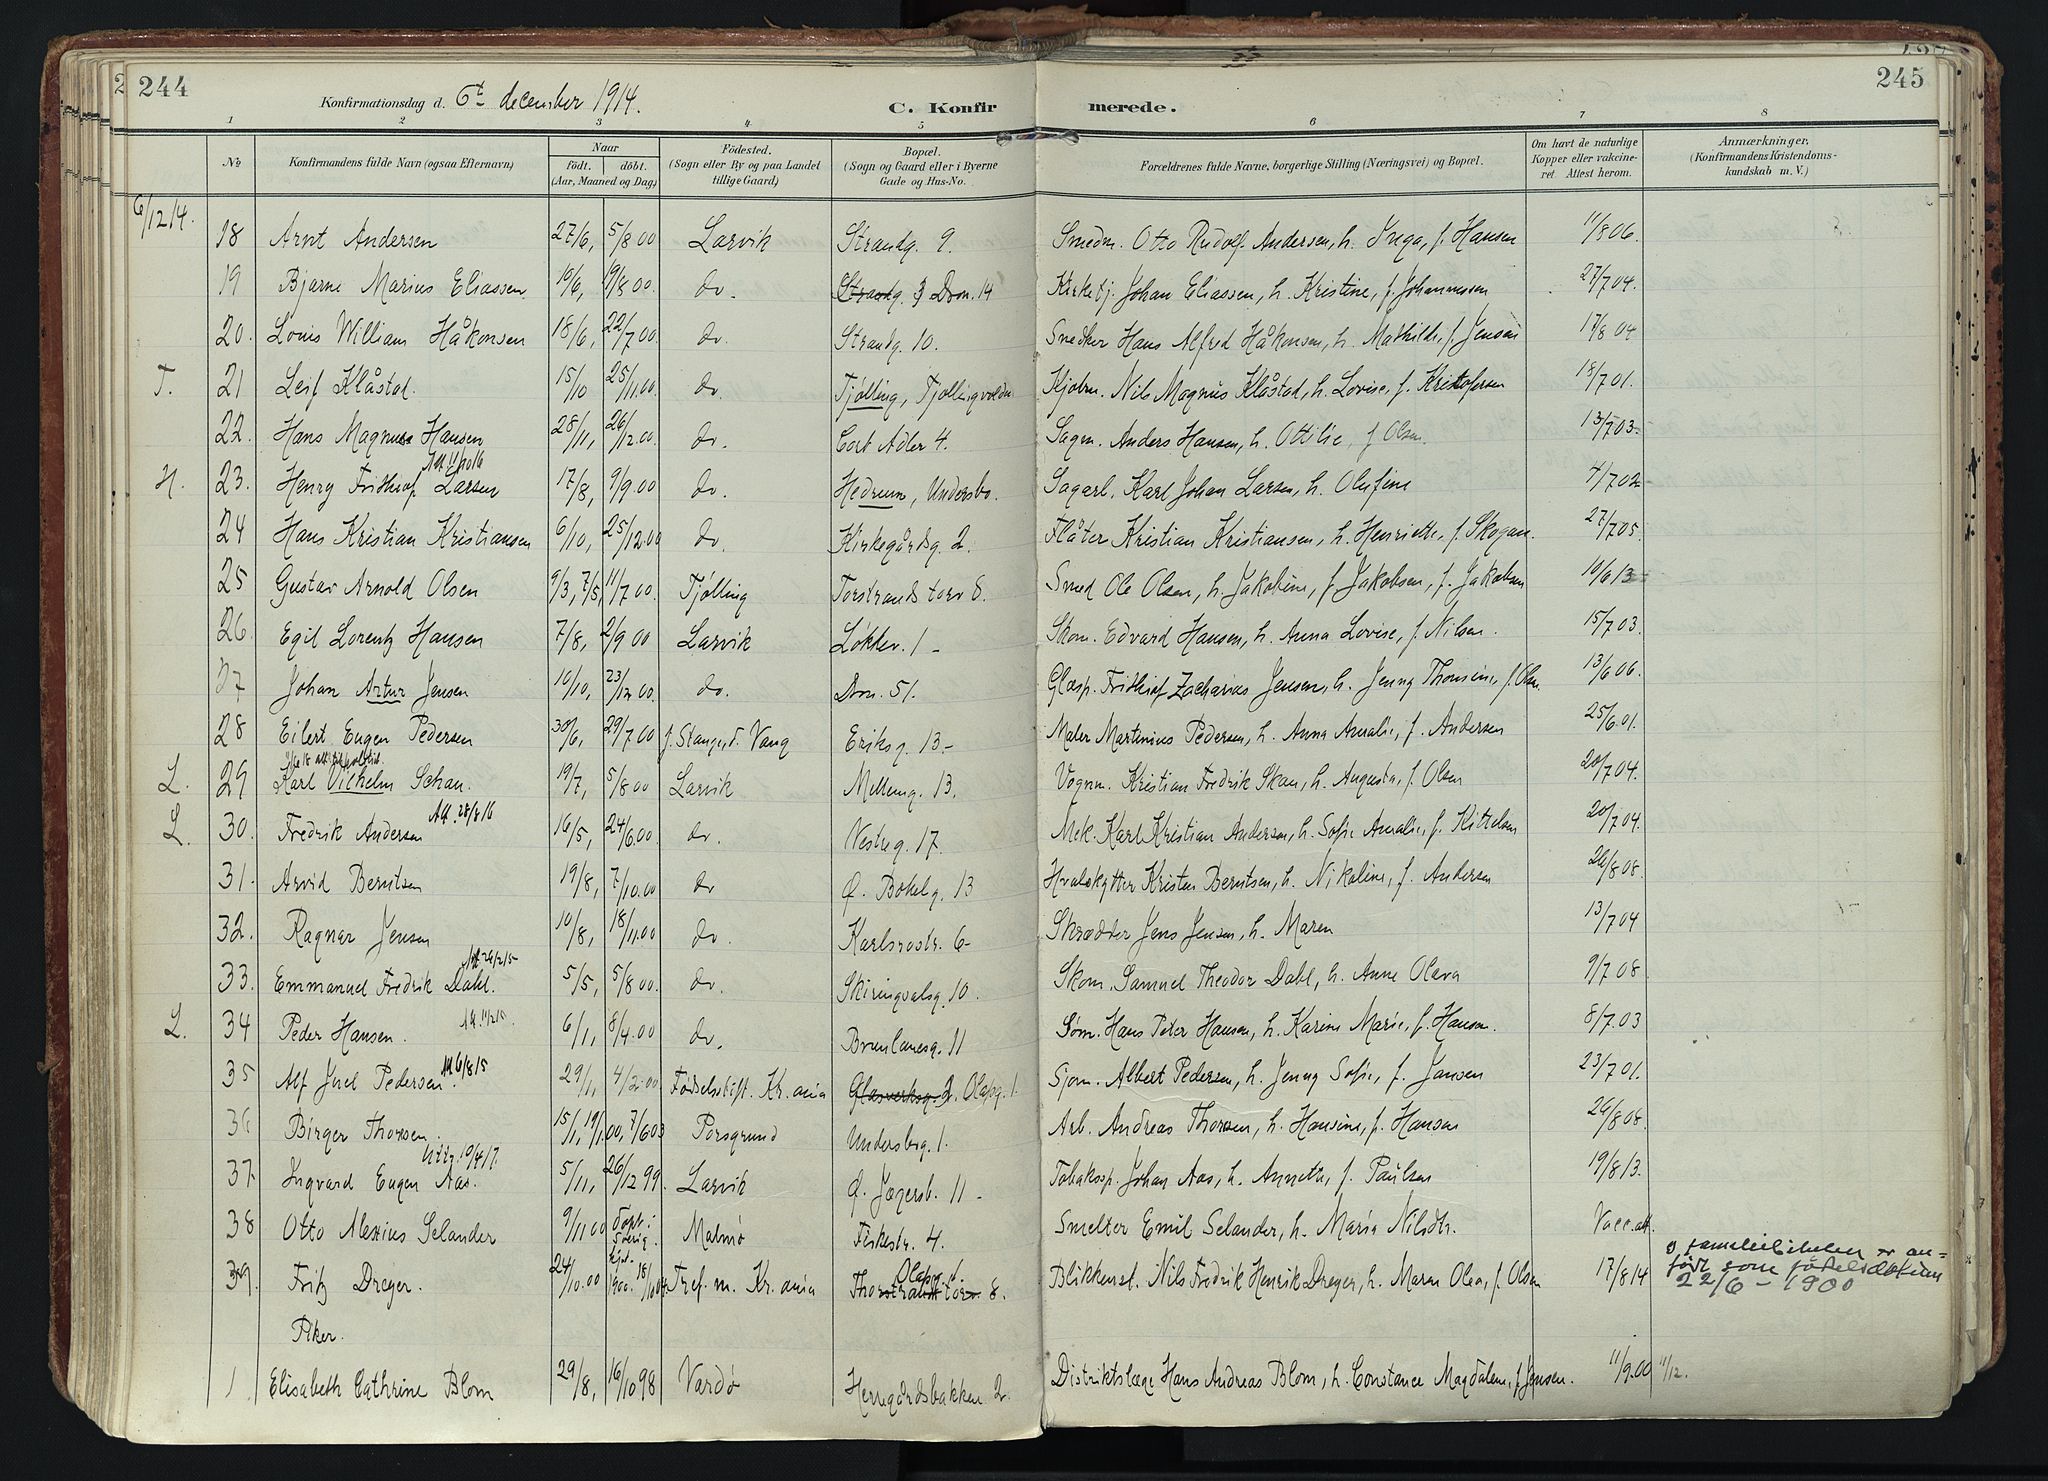 244
Konfirmationsdag d. 6t december 1914.
C. Konfirmerede.
245
1 2 3 4 5 6 7 8
No Konfirmandens fulde Navn (ogsaa Efternavn) Naar födt. döbt. (Aar, Maaned og Dag) Födested. (Sogn eller By og paa Landet tillige Gaard) Bopæl. (Sogn og Gaard eller i Byerne Gade og Hus-No. Forældrenes fulde Navne, borgerlige Stilling (Næringsvei) og Bopæl. Om havt de naturlige Kopper eller vakcineret Attest herom. Anmærkninger. (Konfirmandens Kristendomskundskab m. V.)
6/12 14.
18 Arnt Andersen 27/6, 5/8 00 Larvik Strandg. 9. Smedm. Otto Rudolf Andersen, h. Inga, f. Hansen 11/8 06.
19 Bjarne Marius Eliassen 10/6, 19/8 00. do. Strandg. 3 Dron. 14 Kirketj. Johan Eliassen, h. Kristine, f. Johannesen 27/7 04.
20. Louis William Håkonsen 18/6, 22/7 00. do. Strandg. 10. Snedker Hans Alfred Håkonsen, h. Mathilde, f. Jensen 17/8 04
T. 21 Leif Klåstad. 15/10 25/11.00. do. Tjølling, Tjøllingvolden Kjøbm. Nils Magnus Klåstad, h. Lovise, f. Kristofersen 18/7 01.
22. Hans Magnus Hansen 28/11, 26/12.00. do. Cort Adler 4. Sagm. Anders Hansen, h. Ottilie, f Olsen 13/7 03
Att 11/10 16
H. 23. Henry Fridthiof Larsen 17/8, 9/9.00 do. Hedrum, Undersbo. Sagarb. Karl Johan Larsen, h. Olufine 4/7 02
24 Hans Kristian Kristiansen 6/10, 25/12.00 do. Kirkegårdsg. 2. Flåter Kristian Kristiansen, h. Henriette, f. Skogan. 27/7 05.
25 Gustav Arnold Olsen 9/3, 7/5, 11/7 00. Tjølling Torstrands torv 8. Smed Ole Olsen, h. Jakobine, f Jakobsen, f. Jakobsen 10/6 13
26. Egil Lorentz Hansen 7/8, 2/9 00 Larvik Løkkev. 1 - Skom. Edvard Hansen, h. Anna Lovise, f. Nilsen. 15/7 03.
27 Johan Artur Jensen 10/10, 23/12 00. do. Dron. 51. Glasp. Fridthiof Zacharias Jensen, h. Jenny Thomine, f. Olsen. 13/6 06.
28 Eilert Eugen Pedersen 30/6, 29/7 00 f. Stange, d. Vang Eriksg. 13.- Maler Martinius Pedersen, h. Anna Amalie, f. Andersen 25/6 01.
L. 29 Karl Vilhelm Schau. 19/7, 5/8 00 Larvik Mellemg. 13. Vognm. Kristian Fredrik Skau, h. Augusta, f. Olsen 20/7 04.
Att. 28/8 16
L. 30. Fredrik Andersen 16/5, 24/6.00. do. Nesteg. 17. Mek. Karl Kristian Andersen, h. Sofie Amalie, f. Kittelsen 20/7 04.
31. Arvid Berntsen 19/8, 7/10.00 do Ø. Bøkelg. 13 Hvalskytter Kristen Berntsen, h. Nikoline, f. Andersen 26/8 08.
32. Ragnar Jensen 10/8, 18/11.00 do. Karlsrostr. 6- Skrædder Jens Jensen, h. Maren 13/7 04
33. Emmanuel Fredrik Dahl. 5/5, 5/8 00. do. Skiringvalsg. 10. Skom. Samuel Theodor Dahl, h. Anne Olava 9/7 08
L. 34 Peder Hansen. 6/1, 8/4.00 do. Brunlanesg. 11 Søm. Hans Peter Hansen, h. Karine Marie, f. Hansen. 8/7.03
35 Alf Juel Pedersen Att 6/8 15 29/1, 4/2.00. Fødselsstift. Kr.ania Glasverksg. 2, Olafsg. 1. Sjøm. Albert Pedersen, h. Jenny Sofie, f. Jansen 23/7 01.
36 Birger Thorsen. 15/1, 19/1.00, 7/6 03 Porsgrund Undersbog. 1. Arb. Andreas Thorsen, h. Hansine, f. Hansen 26/8 08.
Uttr. 19/4 17.
37. Ingvard Eugen Aas. 5/11, 26/12 99. Larvik Ø. Jægersb. 11 - Tobakssp. Johan Aas, h. Annette, f. Paulsen 19/8 13.
38 Otto Alexius Selander 9/11 00 döpt i Sverig. Malmø Fiskestr. 4. Smelter Emil Selander, h. Maria Nilsdtr. Vacc.att.
39. Fritz Dreyer. 24/10.00 Fref. m. Kr.ania Thorstrands torv 8. Olafsg. 1 Blikkensl. Nils Fredrik Henrik Dreyer, h. Maren Olea, f. Olsen 17/8 14 I familiebibelen er anført som fødselsdatum 22/6 - 1900
Piker.
1. Elisabeth Cathrine Blom 29/8, 16/10 98 Vardø Herregårdsbakken 2. Distriktslæge Hans Andreas Blom, h. Constance Magdalene, f. Jensen. 11/9.00 11/12.